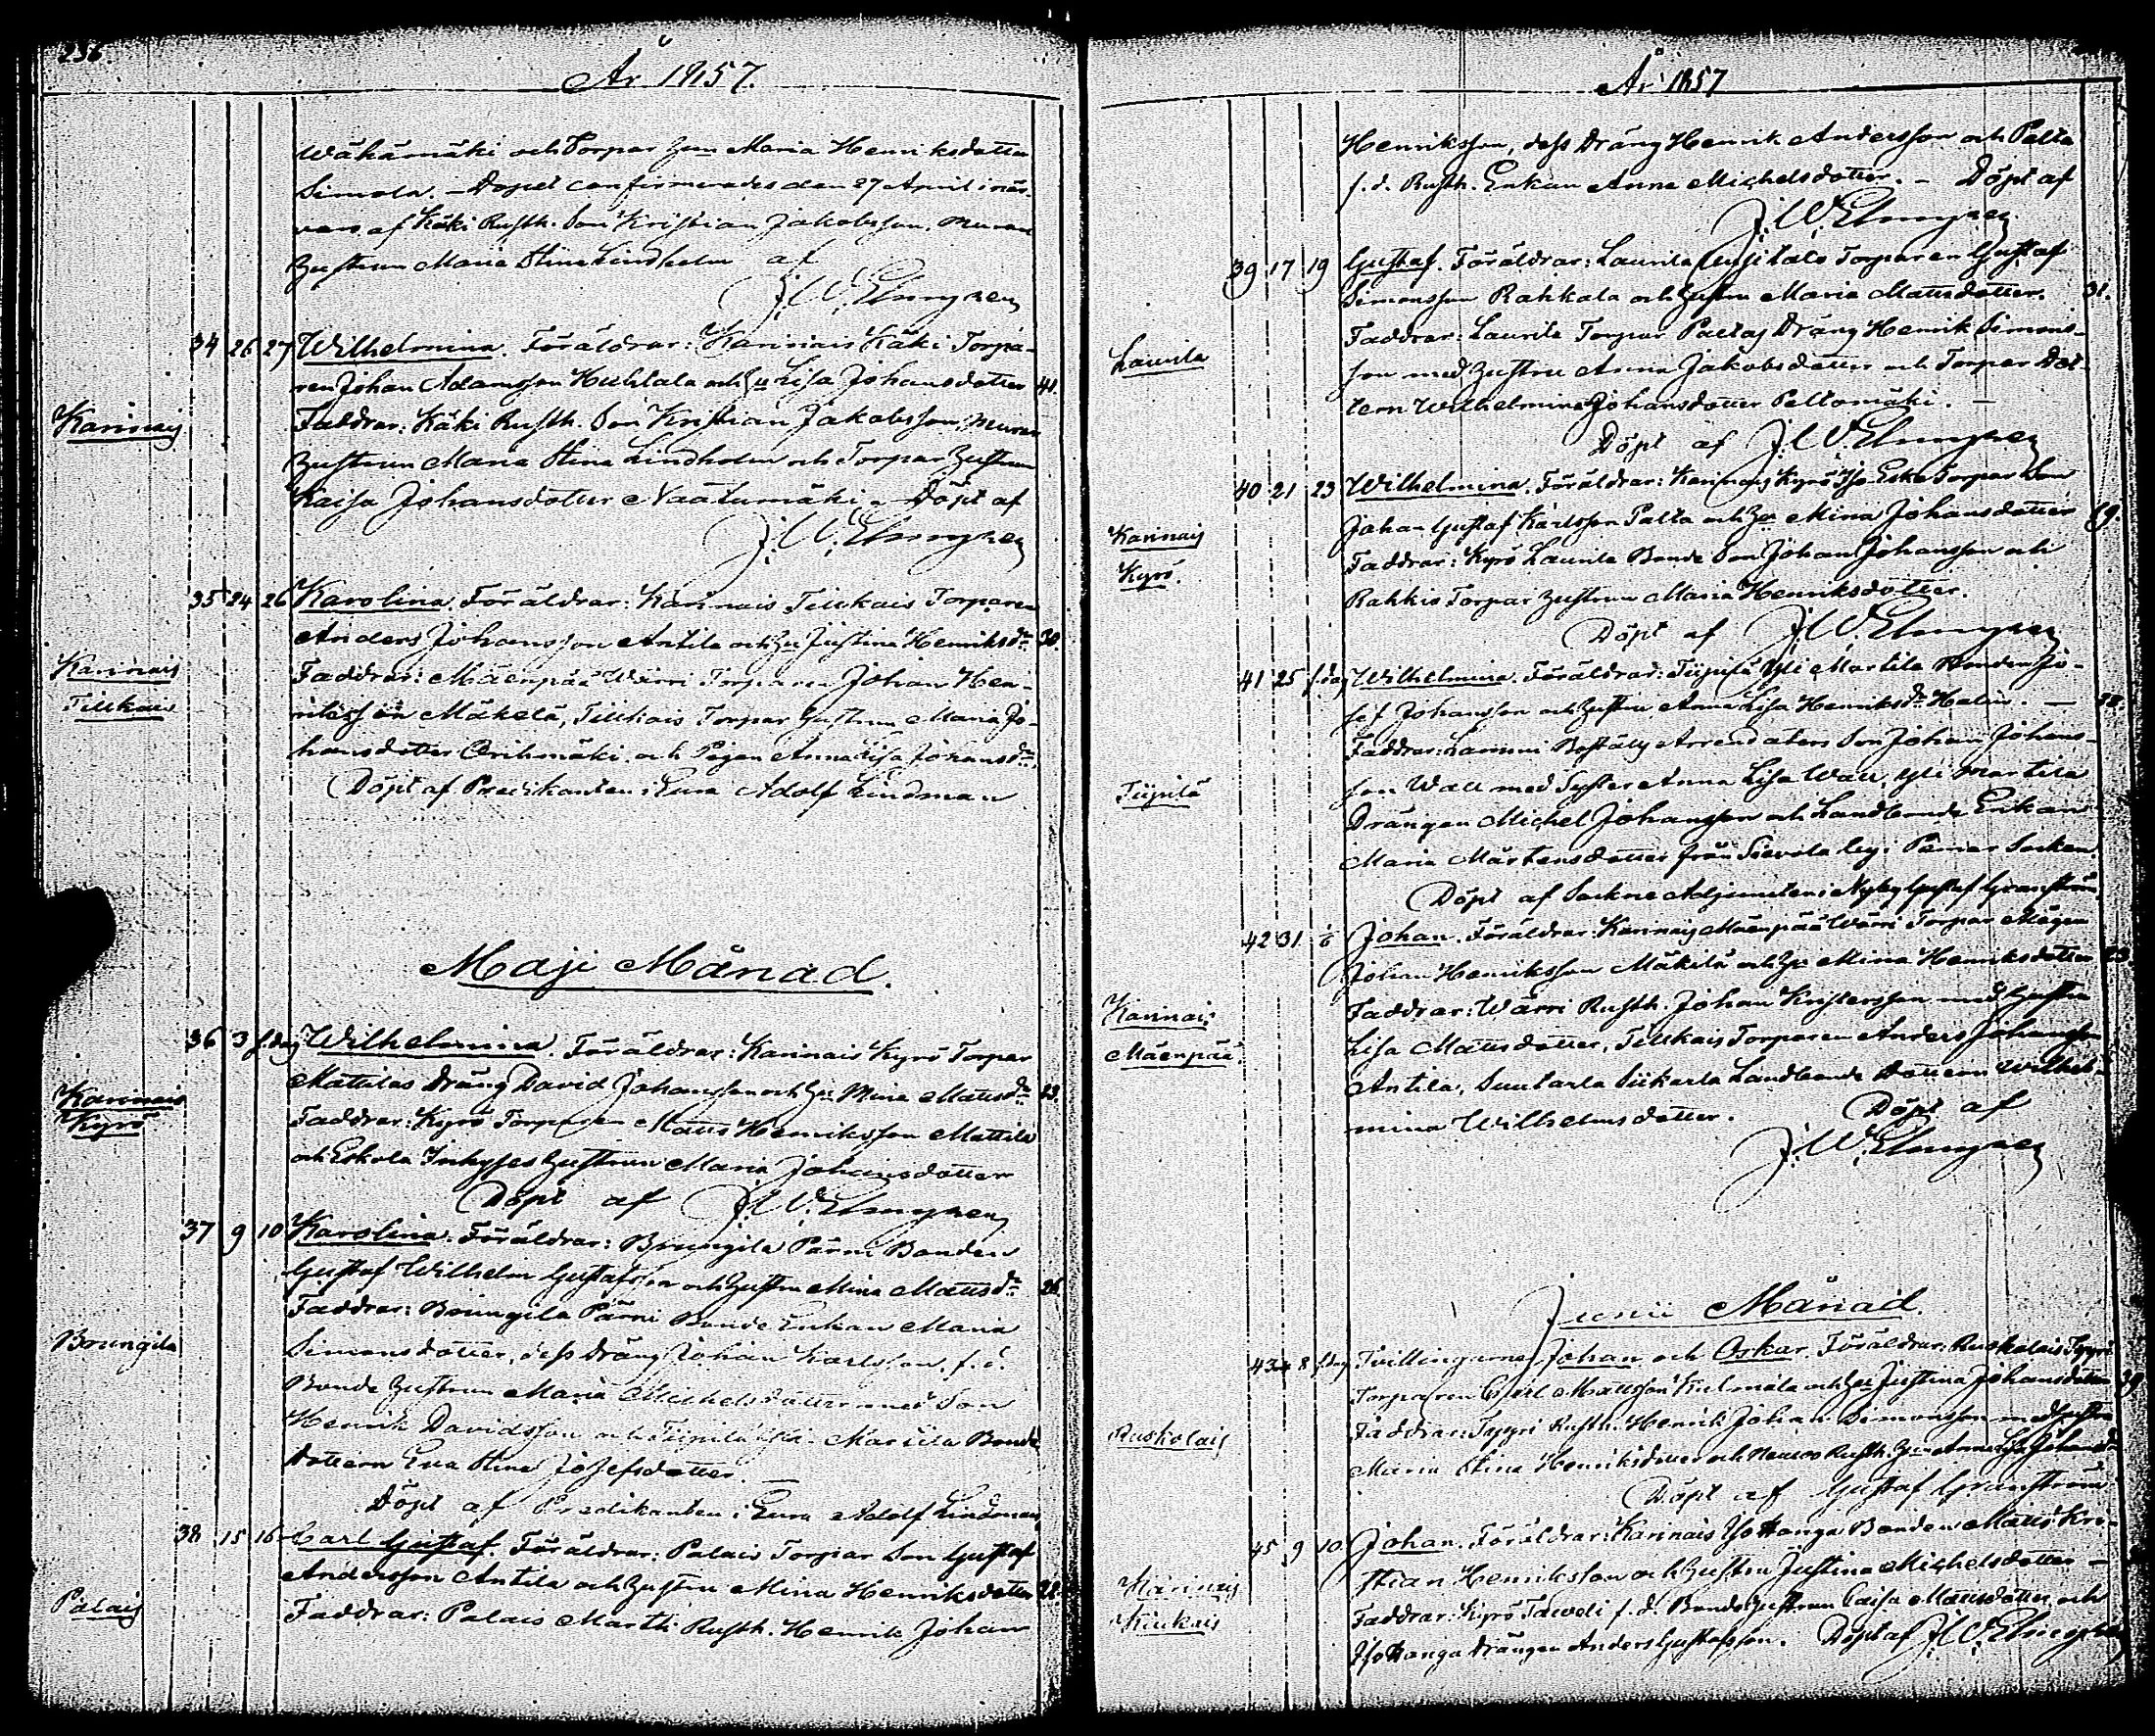 256.
År 1857.
Wähämäki och Torpar Hun Maria Henriksdotter
Simola. – Dopet confirmerades den 27 April i när-
varo af Käki Rusth. Son Kristian Jakobsson, Muraren
Hustrun Maria Stina Lindholm af
J. W. Elmgren
34 26 27 Wilhelmina. Föräldrar: Karinais Käki Torpa-
Karinais
ren Johan Adamsson Huhtala och Hu Lisa Johansdotter 41.
Faddrar: Käki Rusth. Son Kristian Jakobsson, Murar
Hustrun Maria Stina Lindholm och Torpar Hustrun
Kaisa Johansdotter Näätumäki. – Döpt af
J. W. Elmgren
35 24 26 Karolina. Föräldrar: Karinais Tiukais Torparen
Karinais
Tiukais
Anders Johansson Antila och Hu Justina Henriksdr 30.
Faddrar: Mäenpää Wärri Torparen Johan Hen-
riksson Mäkelä, Tiukais Torpar Hustrun Maria Jo-
hansdotter Orihmäki och Pigan Anna Lisa Johansdr.
Döpt af Predikanten i Eura Adolf Lindman
Maji Månad.
36 3 f.dag Wilhelmina. Föräldrar: Karinais Kyrö Torpar
Karinais
Kyrö
Mattilas Dräng David Johansson och Hu Mina Mattsdr 23.
Faddrar: Kyrö Torparen Matts Henriksson Mattila
och Eskola Inhyses Hustrun Maria Johansdotter
Döpt af J. W. Elmgren
37 9 10 Karolina. Föräldrar: Brungila Pärni Bonden
Brungila
Gustaf Wilhelm Gustafsson och Hustru Mina Mattsdr 26.
Faddrar: Brungila Pärni Bonde Enkan Maria
Simonsdotter, dess Dräng Johan Karlsson, f.d.
Bonde Hustrun Maria Michelsdotter med Son
Henrik Davidsson och Tiipilä Martila Bonde
Dottern Eva Stina Josefsdotter. –
Döpt af Predikanten i Eura Adolf Lindman
38 15 16 Carl Gustaf. Föräldrar: Palais Torpar Son Gustaf
Palais
Andersson Antila och Hustru Mina Henriksdotter 22.
Faddrar: Palais Martti Rusth. Henrik Johan
År 1857
Henriksson, dess Dräng Henrik Andersson och Pelto
f.d. Rusth. Enkan Anna Michelsdotter. – Döpt af
J. W. Elmgren
39 17 19 Gustaf. Föräldrar: Laurila Torparen Gustaf
Simonsson Rahkala och Hustru Maria Mattsdotter. 31.
Laurila
Faddrar: Laurila Torpar Paltas Dräng Henrik Simons-
son med Hustru Anna Jakobsdotter och Torpar Dot-
tern Wilhelmina Johansdotter Peltomäki. –
Döpt af J. W. Elmgren
40 21 23 Wilhelmina. Föräldrar: Karinais Kyrö Iso Esko Torpar Son
Karinais
Kyrö.
Johan Gustaf Karlsson Palta och Hu Mina Johansdotter
Faddrar: Kyrö Laurila Bonde Son Johan Johansson och
Rahkio Torpar Hustrun Maria Henriksdotter.
Döpt af J. W. Elmgren
41 25 f.dag Wilhelmina. Föräldrar: Tiipilä Yli Martila Bonden Jo-
sef Johansson och Hustru Anna Lisa Henriksdr
Faddrar: Lammi Boställs Arrendators Son Johan Johans-
Tiipilä
son Wall med Syster Anna Lisa Wall, Yli Martila
Drängen Michel Johansson och Landbonde Enkan
Maria Mårtensdotter från by i Pemar Socken.
Döpt af Sockne Adjunkten i Nyby Gustaf Granström
42 31 Johan. Föräldrar: Karinais Mäenpää Wärri Torpar Mågen
Johan Henriksson Mäkelä och Hu Mina Henriksdotter 23.
Karinais
Mäenpää
Faddrar: Wärri Rusth. Johan Kristersson med Hustru
Lisa Mattsdotter, Tiukais Torparen Anders Johansson
Antila, Suutarla Landbonde Dottern Wilhel-
mina Wilhelmsdotter. Döpt af
J. W. Elmgren
Junii Månad.
43 8 f.dag Tvillingarne Johan och Oskar. Föräldrar: Ruskolais
Torparen Carl Mattsson och Hu Justina Johansdotter
Ruskolais
Faddrar: Rusth. Henrik Johan Simonsson med Hustru
Maria Stina Henriksdotter och Rusth. Hu Anna Lisa
Döpt af Gustaf Granström
45 9 10 Johan. Föräldrar: Karinais Iso Hanga Bonden Matts Kri-
Karinais
Kiukais
stian Henriksson och Hustru Justina Michelsdotter –
Faddrar: Kyrö f.d. Bonde Hustrun Caisa Mattsdotter och
Iso Hanga Drängen Anders Gustafsson. Döpt af J. W. Elmgren